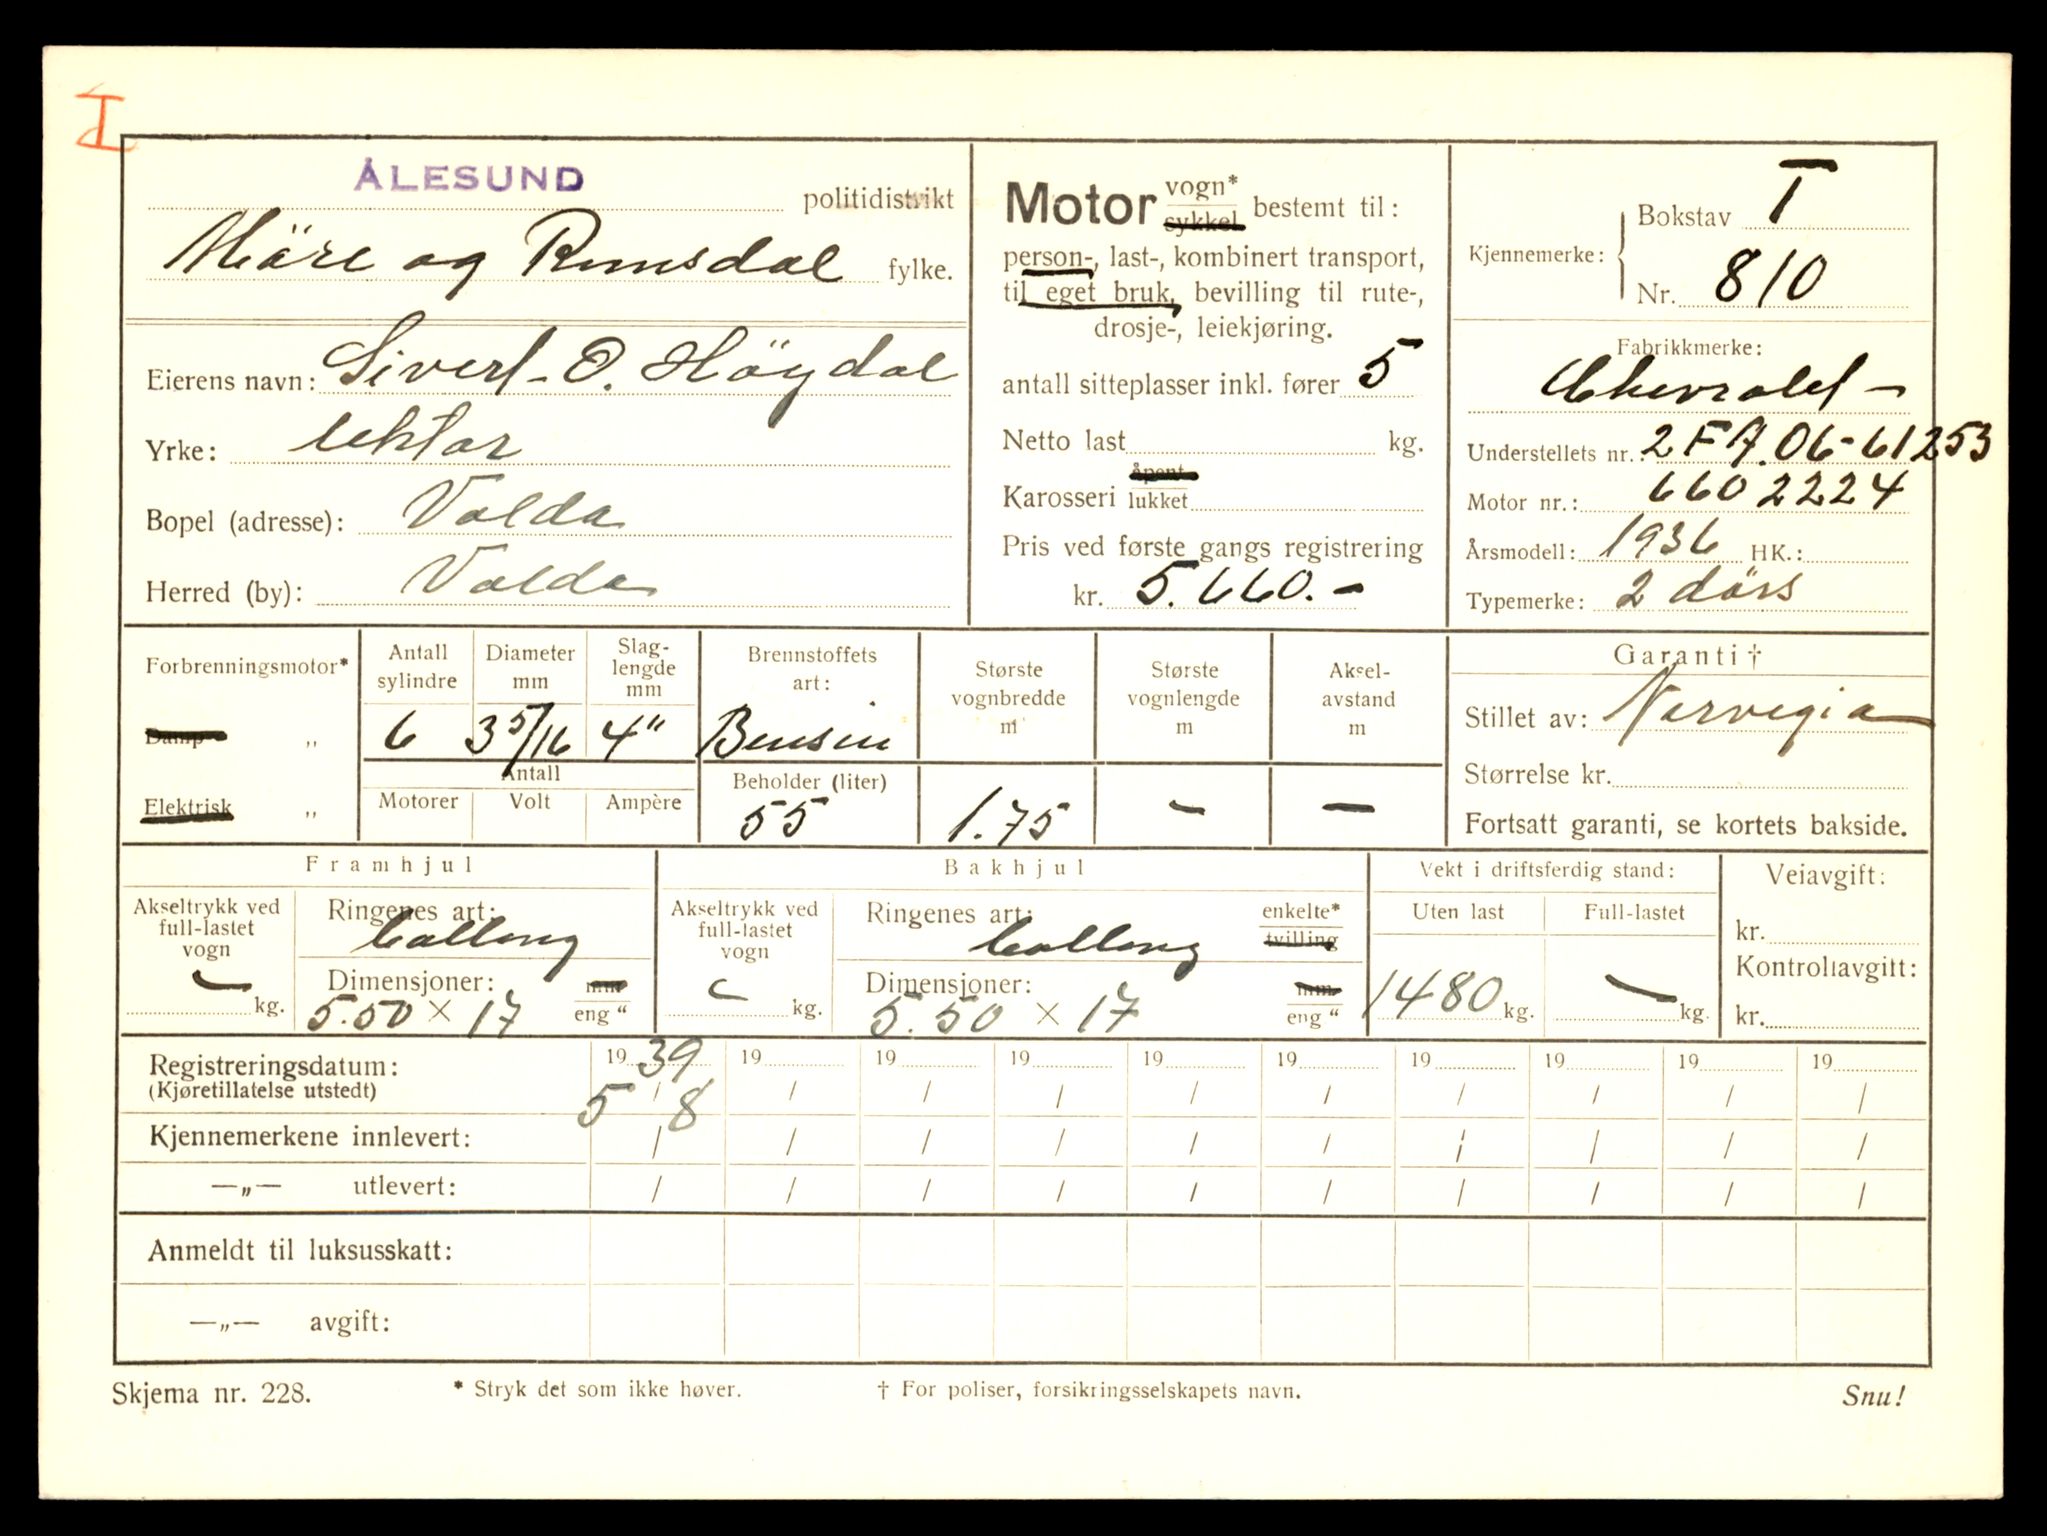 I
ÅLESUND politidistrikt
Möre og Romsdal fylke.
Eierens navn: Sivert O. Höydal
Yrke: lektor
Bopel (adresse): Volda
Herred (by): Volda
Motor vogn* sykkel bestemt til:
person-, last-, kombinert transport,
til eget bruk, bevilling til rute-,
drosje-, leiekjøring.
antall sitteplasser inkl. fører 5
Netto last kg.
Karosseri åpent lukket
Pris ved første gangs registrering
kr. 5.660.-
Kjennemerke: Bokstav T
Nr. 810
Fabrikkmerke:
Chevrolet -
Understellets nr.: 2 FA. 06-61253
Motor nr.: 6602224
Årsmodell: 1936 HK.:
Typemerke: 2 dörs
Forbrenningsmotor*
Damp „
Elektrisk „
Antall sylindre
6
Diameter mm
3 5/16
Slaglengde mm
4"
Antall
Motorer Volt Ampère
Brennstoffets art:
Bensin
Beholder (liter)
55
Største vognbredde m
1.75
Største vognlengde m
-
Aksel-avstand m
-
Garanti †
Stillet av: Norvegia
Størrelse kr.
Fortsatt garanti, se kortets bakside.
Framhjul
Akseltrykk ved full-lastet vogn
- kg.
Ringenes art:
Ballong
Dimensjoner: mm
5.50 × 17 eng "
Bakhjul
Akseltrykk ved full-lastet vogn
- kg.
Ringenes art: enkelte*
Ballong tvilling
Dimensjoner: mm
5.50 × 17 eng "
Vekt i driftsferdig stand:
Uten last Full-lastet
1480 kg. - kg.
Veiavgift:
kr.
Kontrollavgift:
kr.
Registreringsdatum: 1939 19 19 19 19 19 19 19 19 19
(Kjøretillatelse utstedt) 5/8 / / / / / / / / /
Kjennemerkene innlevert: / / / / / / / / / /
—„— utlevert: / / / / / / / / / /
Anmeldt til luksusskatt:
—„— avgift:
Skjema nr. 228. * Stryk det som ikke høver. † For poliser, forsikringsselskapets navn. Snu!